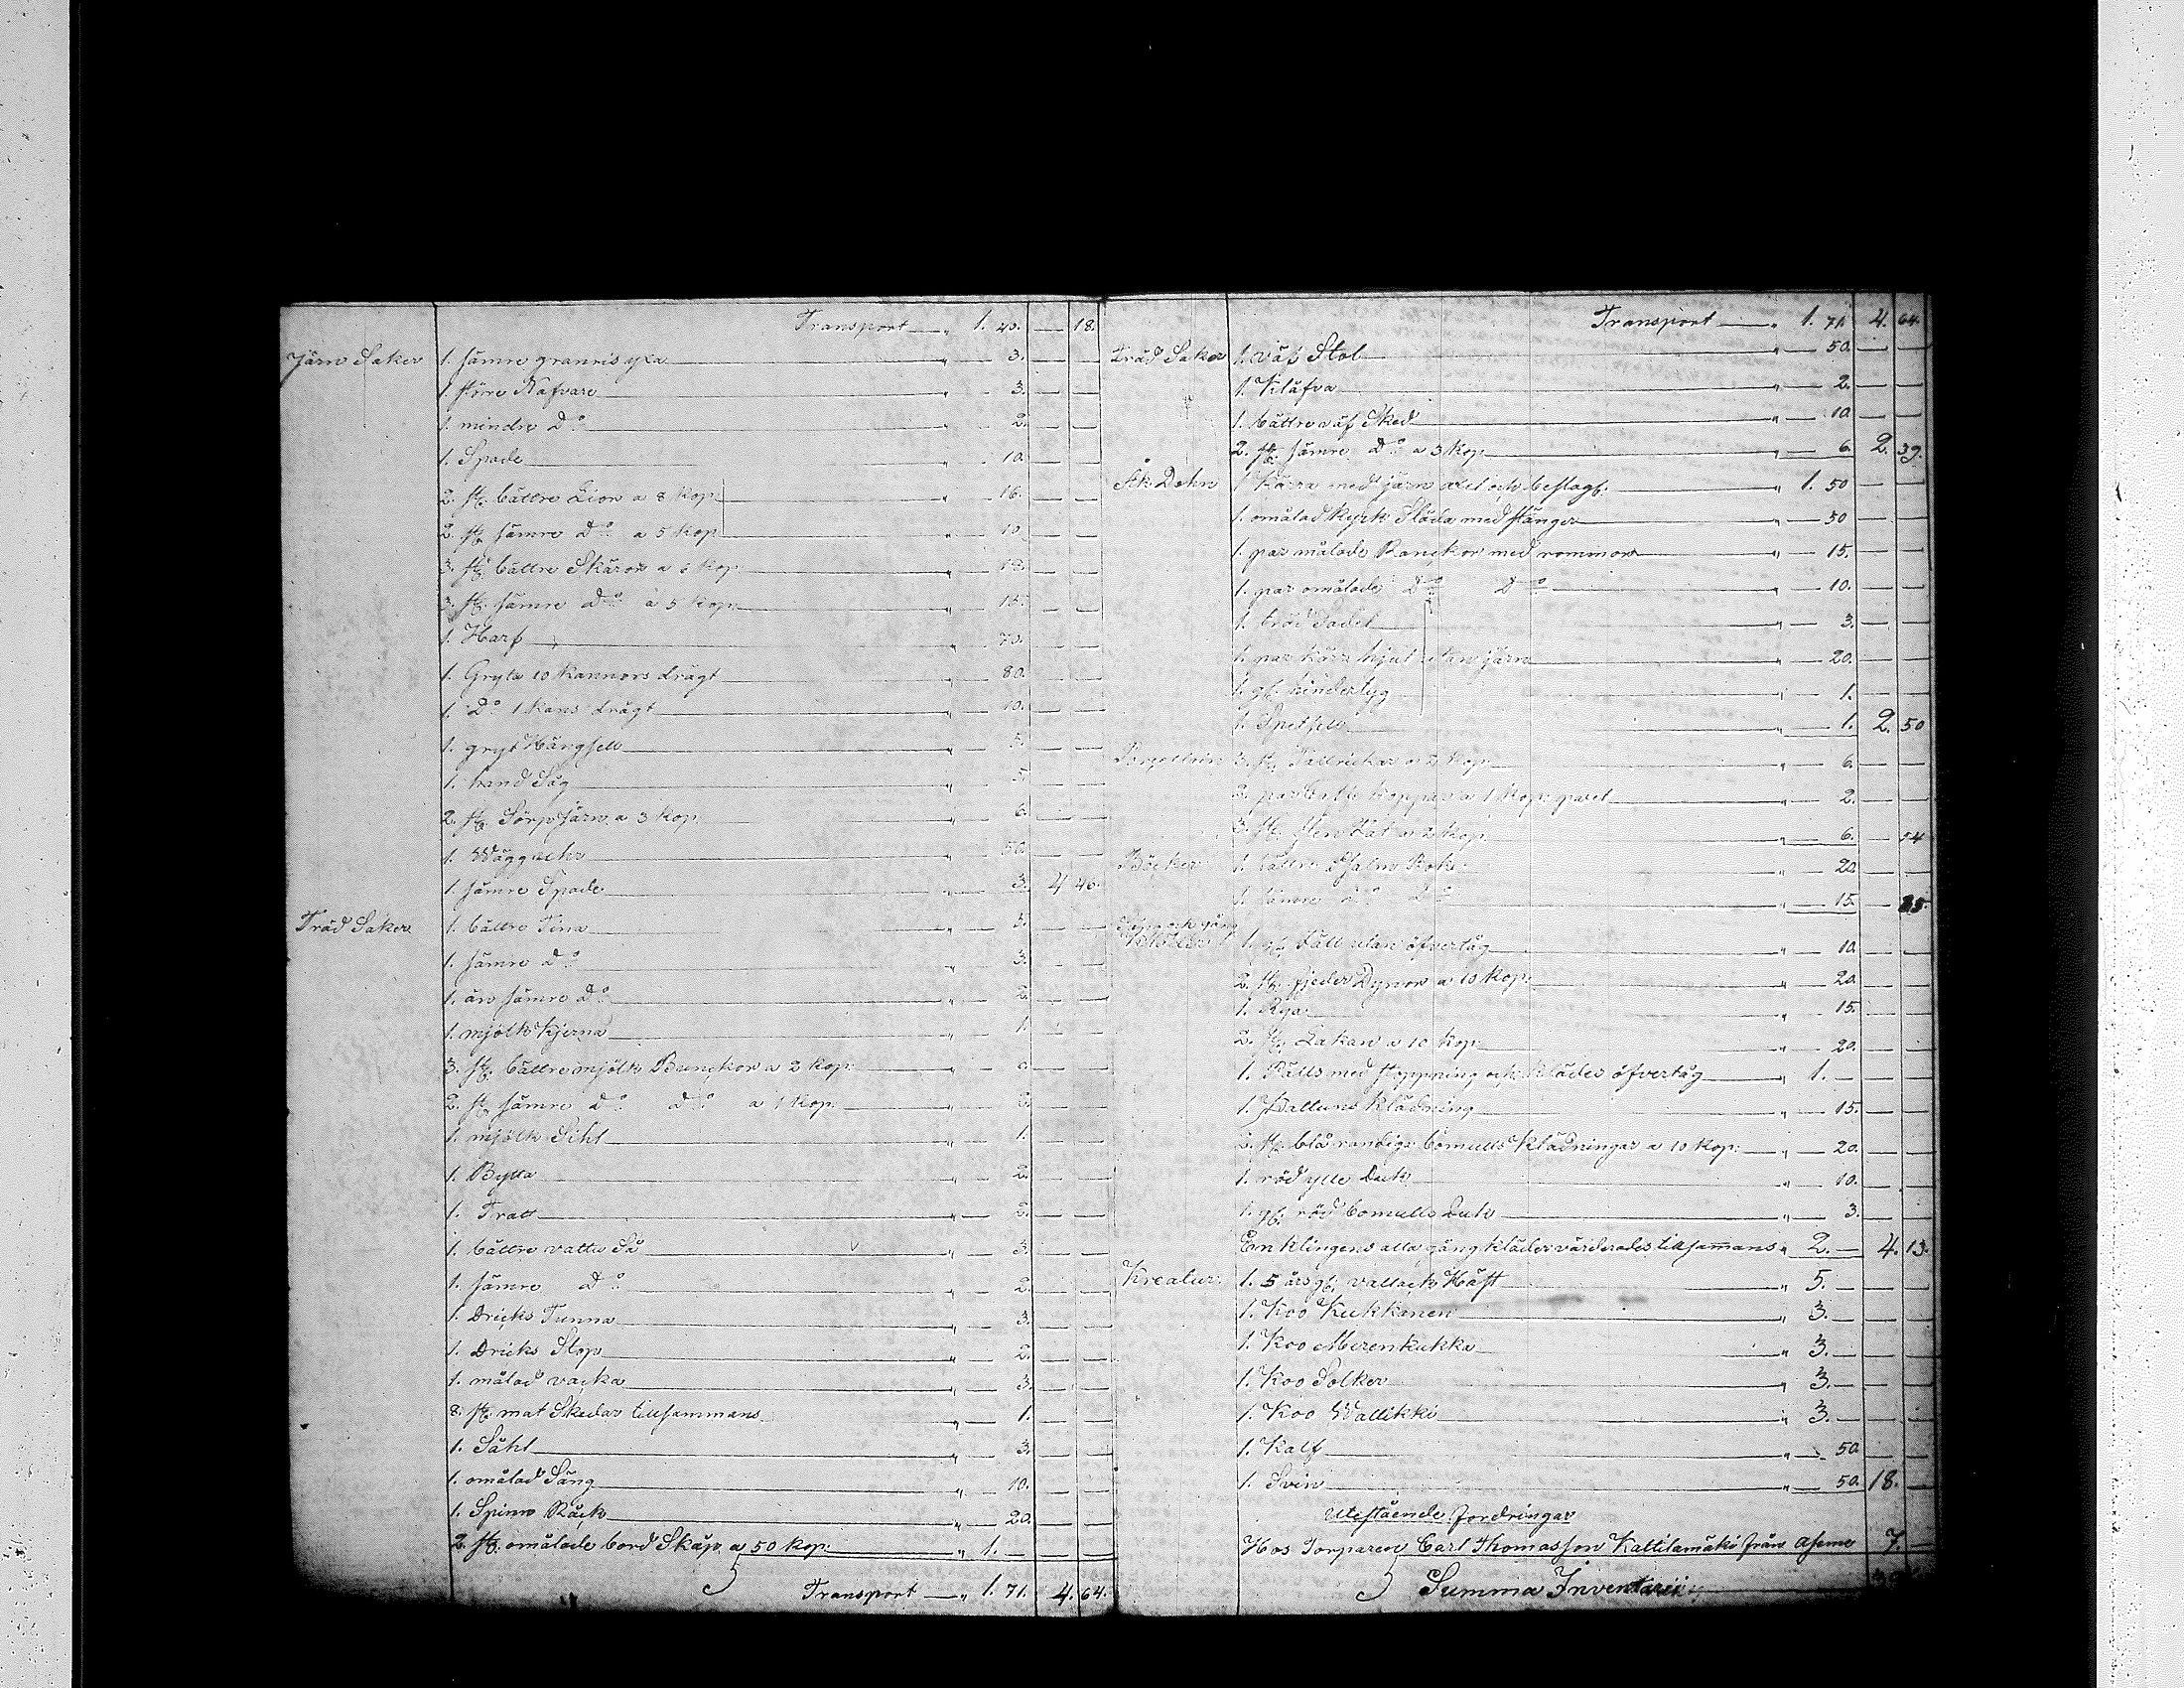 Transport — " 1. 40. — 18.
Järn Saker 1. sämre granris yxa — " — 3. — —
1. störe Nafvare — " — 3. — —
1. mindre D:o — " — 2. — —
1. Spade — " — 10. — —
2. st: bättre Lior a 8 kop: — " — 16. — —
2. st: sämre D:o a 5 kop: — " — 10. — —
3. st: bättre Skäror a 6 kop: — " — 18. — —
3. st: sämre D:o a 5 kop: — " — 15. — —
1. Harf — " — 70. — —
1. Gryta 10 kannors drägt — " — 80. — —
1. D:o 1 kans drägt — " — 10. — —
1. gryt Hängsell — " — 5. — —
1. hand Såg — " — 5. — —
2. st: Sörp järn a 3 kop: — " — 6. — —
1. Wägguhr — " — 50. — —
1. sämre Spade — " — 3. 4 46.
Träd Saker 1. bättre Tina — " — 5. — —
1. sämre D:o — " — 3. — —
1. än sämre D:o — " — 2. — —
1. mjölk Kjerna — " — 1. — —
3. st: bättre mjölk Bunckor a 2 kop: — " — 6. — —
2. st: sämre d:o d:o a 1 kop: — " — 2. — —
1. mjölk Sihl — " — 1. — —
1. Bytta — " — 2. — —
1. Tratt — " — 2. — —
1. bättre vattu Så — " — 3. — —
1. sämre d:o — " — 2. — —
1. Dricks Tunna — " — 3. — —
1. Dricks Stop — " — 2. — —
1. målad vacka — " — 3. — —
8. st: mat Skedar tillsammans — " — 1. — —
1. Såhl — " — 3. — —
1. omålad Säng — " — 10. — —
1. Spinn Råck — " — 20. — —
2. st: omålade bord Skåp a 50 kop: — " 1. — — —
Transport — " 1. 71. 4. 64.
Transport — " 1. 71. 4. 64.
Träd Saker 1. väf Stol — " — 50. — —
1. Klåfva — " — 2. — —
1. bättre väf Sked — " — 10. — —
2. st: sämre D:o a 3 kop: — " — 6. 2. 39.
Åk Dohn 1 Kärra med järn axel och beslagt: — " 1. 50 — —
1. omålad kyrk Släda med stänger — " — 50 — —
1. par målade Ranckor med rommor — " — 15. — —
1. par omålade D:o D:o — " — 10. — —
1. träd Sadel — " — 3. — —
1. par kärr hjul utan järn — " — 20. — —
1. gl: hindertyg — " — 1. — —
1. — 1. 2. 50
3. st: Tallrickar a 2 kop: — " — 6. — —
2. par koppar a 1 kop: paret — " — 2. — —
3. st: sten Fat a 2 kop: — " — 6. — 14
Böcker 1. bättre Psalm Bok — " — 20. — —
1. sämre d:o d:o — " — 15. — 35.
Säng och gång Kläder 1. gl: Fäll utan öfvertåg — " — 10. — —
2. st: fjeder Dynor a 10 kop: — " — 20. — —
1. Rya — " — 15. — —
2. st: Lakan a 10 kop: — " — 20. — —
1. Pälts med stoppning och klädes öfvertåg — " 1. — — —
1. Kattuns klädning — " — 15. — —
2. st: blå randiga bomulls Klädningar a 10 kop: — " — 20. — —
1. röd ylle Duk — " — 10. — —
1. gl: röd bomulls Duk — " — 3. — —
Enklingens alla gång kläder värderades tillsammans " 2. — 4. 13.
Kreatur 1. 5 års gl: vallack Häst — " 5. — — —
1. Koo Kukkanen — " 3. — — —
1. Koo Merenkukka — " 3. — — —
1. Koo Solker — " 3. — — —
1. Koo Wallikki — " 3. — — —
1. Kalf — " — 50. — —
1. Svin — " — 50. 18. —
Utestående fordringar
Hos Torparen Carl Thomasson Kattilamäki från Aseme 7. —
Summa Inventarii